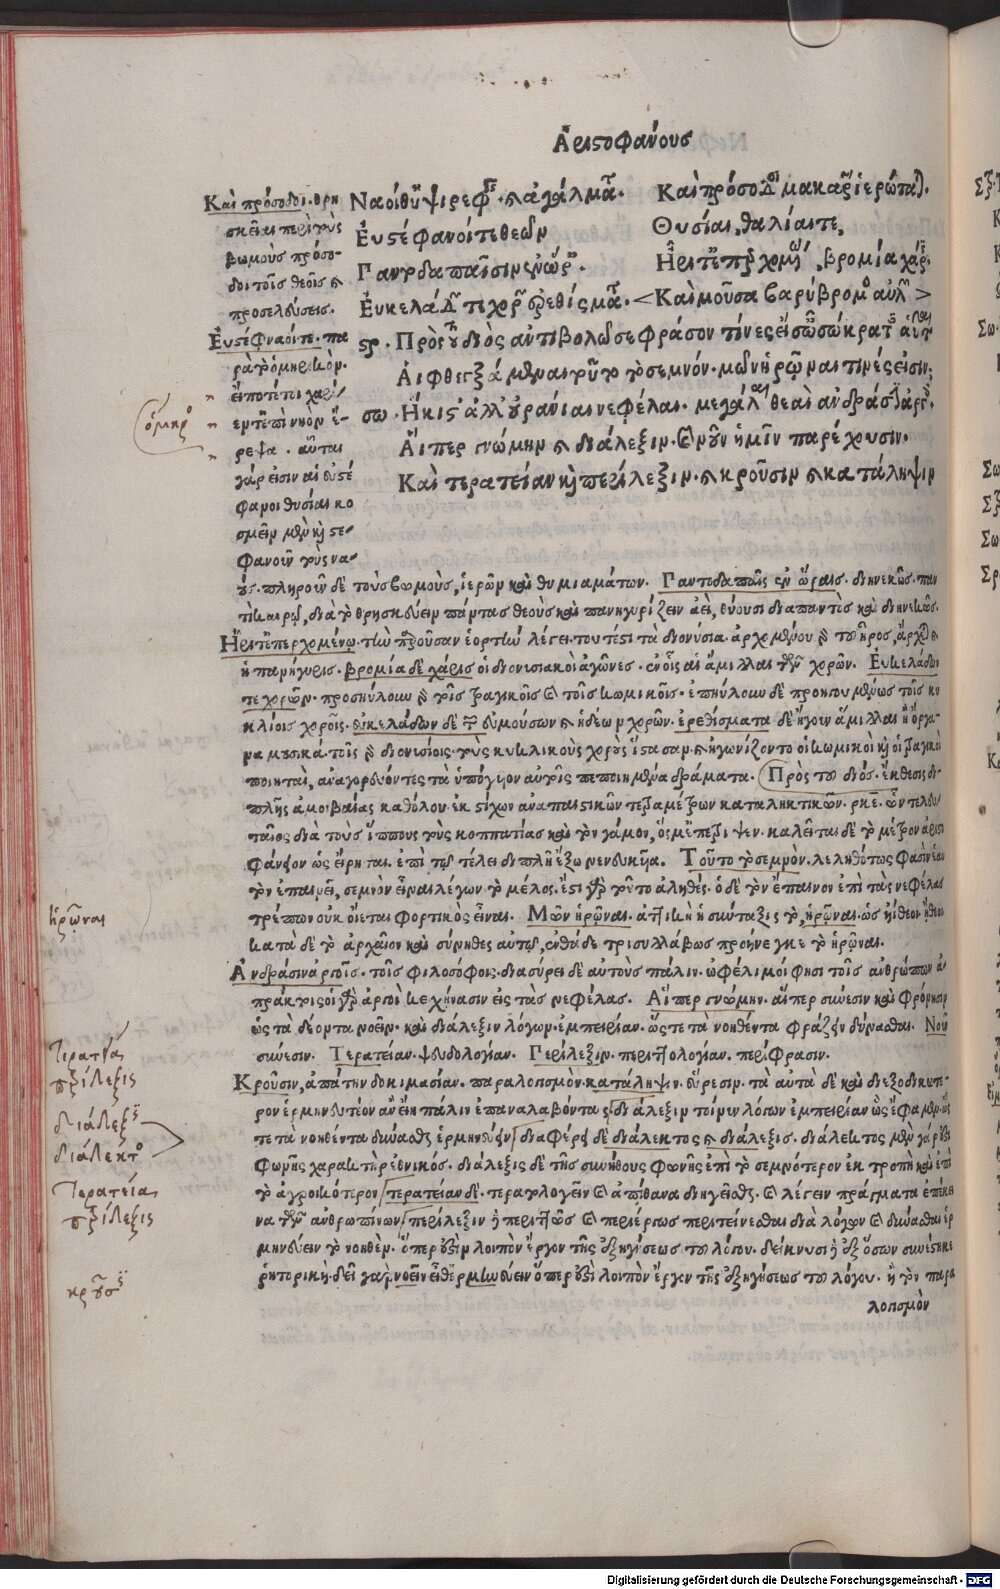 Ἀριστοφάνους
Καὶ πρόσοδοι. θρη
σκεῖαι περὶ τοὺς
βωμοὺς πρόσο-
δοι τοῖς θεοῖς καὶ
προσελεύσεις.
Ἐυστέφανοί τε. πα
ρὰ τὸ ὁμηρικόν.
εἴποτέ τοι χαρί-
εντ' ἐπὶ νηὸν ἔ-
ρεψα. αὗται
γάρ εἰσιν αἱ εὐστέ
φανοι θυσίαι κο
σμεῖν μὲν καὶ στε-
φανοῦν τοὺς να-
Ναοί θ' ὑψιρεφεῖς καὶ ἀγάλματα. Καὶ πρόσοδοι μακάρων ἱερώταται.
Ἐυστέφανοί τε θεῶν Θυσίαι, θαλίαι τε,
Παντοδαπαῖσιν ἐν ὥραις. Ἦρι τ' ἐπερχομένῳ, βρομία χάρις.
Ἐυκελάδων τε χορῶν ἐρεθίσματα. Καὶ μοῦσα βαρύβρομος αὐλῶν
στρ. Πρὸς τοῦ διὸς ἀντιβολῶ σε φράσον τίνες εἰσ' ὦ σώκρατες αὗται
Αἱ φθεγξάμεναι τοῦτο τὸ σεμνόν. μῶν ἡρῷναι τινές εἰσιν;
σω. Ἥκιστ' ἀλλ' οὐράνιαι νεφέλαι. μεγάλαι θεαὶ ἀνδράσιν ἀργοῖς.
Αἵπερ γνώμην καὶ διάλεξιν καὶ νοῦν ἡμῖν παρέχουσιν.
Καὶ τερατείαν καὶ περίλεξιν. καὶ κροῦσιν καὶ κατάληψιν
οὺς. πληροῦν δὲ τοὺς βωμοὺς, ἱερῶν καὶ θυμιαμάτων. Παντοδαπαῖς ἐν ὥραις. διηνεκῶς. παν
τὶ καιρῷ, διὰ τὸ θρησκεύειν πάντας θεοὺς καὶ πανηγυρίζειν ἀεὶ, θύουσι διαπαντὸς καὶ διηνεκῶς.
Ἦρι τ' ἐπερχομένῳ. τὴν παροῦσαν ἑορτὴν λέγει. τουτέστι τὰ διονύσια. ἀρχομένου γὰρ τοῦ ἦρος, ἄρχεται καὶ
ἡ πανήγυρις. βρομία δὲ χάρις οἱ διονυσιακοὶ ἀγῶνες. ἐν οἷς αἱ ἅμιλλαι τῶν χορῶν. Ἐυκελάδων
τε χορῶν. προσηύλουν γὰρ τοῖς τραγικοῖς καὶ τοῖς κωμικοῖς. ἐπηύλουν δὲ προηγουμένως τοῖς κυ
κλίοις χοροῖς. εὐκελάδων δὲ τῶν εὐμούσων καὶ ἡδέων χορῶν. ἐρεθίσματα δὲ ἤγουν ἅμιλλαι ἢ ὄργα-
να μουσικά. τοῖς γὰρ διονυσίοις τοὺς κυκλικοὺς χοροὺς ἵστασαν. καὶ ἠγωνίζοντο οἱ κωμικοὶ καὶ οἱ τραγικοὶ
ποιηταὶ, ἀναγορεύοντες τὰ ὑπόγυον αὐτοῖς πεποιημένα δράματα. Πρὸς τοῦ διός. ἔκθεσις δι-
πλῆς ἀμοιβαίας καθόλου ἐκ στίχων ἀναπαιστικῶν τετραμέτρων καταληκτικῶν. ρκε. ὧν τελευ
ταῖος διὰ τοὺς ἵππους τοὺς κοππατίας καὶ τὸν γάμον, ὅς μ' ἐπέτριψεν. καλεῖται δὲ τὸ μέτρον ἀριστο
φάνειον ὡς εἴρηται. ἐπὶ τῷ τέλει διπλῆ ἔξω νενευκυῖα. Τοῦτο τὸ σεμνὸν. λεληθότως φασὶν ἑαυ
τὸν ἐπαινεῖ, σεμνὸν εἶναι λέγων τὸ μέλος. ἔστι γὰρ τοῦτο ἀληθές. ὁ δὲ τὸν ἔπαινον ἐπὶ τὰς νεφέλας
τρέπων οὐκ οἴεται φορτικὸς εἶναι. Μῶν ἡρῶναι. ἀττικὴ ἡ σύνταξις τὸ, ἡρῶναι. ὡς ἡίθεοι ἤθεοι
κατὰ δὲ τὸ ἀρχαῖον καὶ σύνηθες αὐτῷ, ἐνθάδε τρισυλλάβως προήνεγκε τὸ ἡρῶναι.
Ἀνδράσιν ἀργοῖς. τοῖς φιλοσόφοις. διασύρει δὲ αὐτοὺς πάλιν. ὠφέλιμοί φησι τοῖς ἀνθρώπων ἀ
πράκτοις οἱ γὰρ ἀργοὶ κεχήνασιν εἰς τὰς νεφέλας. Αἵπερ γνώμην. αἵπερ σύνεσιν καὶ φρόνησιν
ὡς τὰ δέοντα νοεῖν. καὶ διάλεξιν λόγων. ἐμπειρίαν. ὥστε τὰ νοηθέντα φράζειν δύνασθαι. Νοῦν
σύνεσιν. Τερατείαν. ψευδολογίαν. Περίλεξιν. περιττολογίαν. περίφρασιν.
Κροῦσιν, ἀπάτην δοκιμασίαν. παραλογισμὸν. κατάληψιν. εὕρεσιν. τὰ αὐτὰ δὲ καὶ διεξοδικώτε-
ρον ἑρμηνευτέον ἂν εἴη πάλιν ἐπαναλαβόντας. διάλεξιν τοίνυν λόγων ἐμπειρίαν ὡς ἔφαμεν. ὥς
τε τὰ νοηθέντα δύνασθαι ἑρμηνεύειν. διαφέρει δὲ διάλεκτος καὶ διάλεξις. διάλεκτος μὲν γάρ ἐστι
φωνῆς χαρακτὴρ ἐθνικός. διάλεξις δὲ τῆς συνήθους φωνῆς ἐπὶ τὸ σεμνότερον ἐκτροπὴ καὶ ἐπὶ
τὸ ἀγροικότερον. τερατείαν δὲ. τερατολογεῖν καὶ ἀπίθανα διηγεῖσθαι. καὶ λέγειν πράγματα ἐπέκει
να τῶν ἀνθρωπίνων. περίλεξιν ἢ περιττῶς καὶ περιέργως περιτείνεσθαι διὰ λόγων καὶ δύνασθαι ἑρ
μηνεύειν τὸ νοηθέν. ὅπερ ἐστὶν λοιπὸν ἔργον τῆς ἐξηγήσεως τοῦ λόγου. δείκνυσι ἢ ἐξ ὅσων συνέστηκε
ῥητορική. δεῖ γὰρ νοεῖν εἶθ' ἑρμηνεύειν ὅπερ ἐστὶ λοιπὸν ἔργον τῆς ἐξηγήσεως τοῦ λόγου. ἢ τὸν παρα
λογισμὸν
ὁμηρος
ἡρῶναι
Τερατεία
περίλεξις
διάλεξις
διάλεκτος
Τερατεία
περίλεξις
κροῦσις
Digitalisierung gefördert durch die Deutsche Forschungsgemeinschaft - DFG